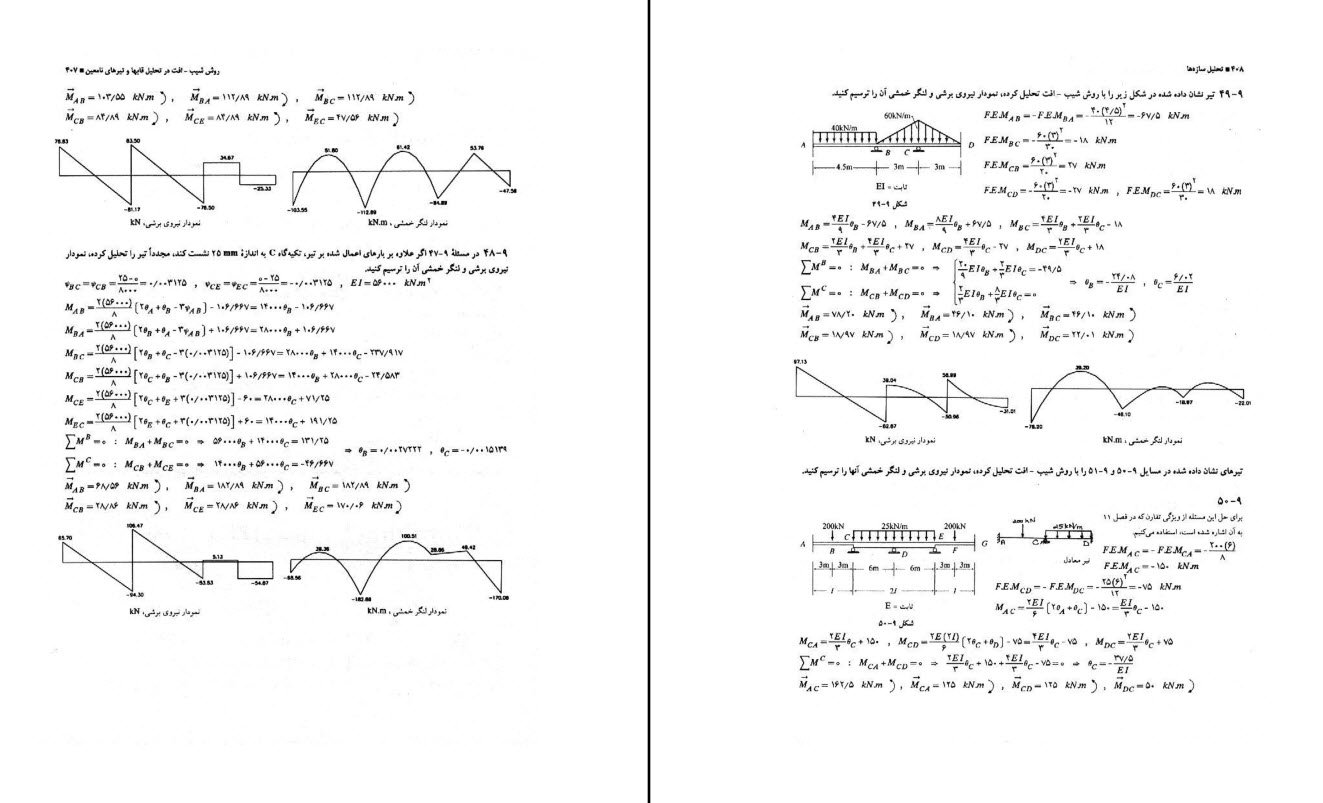 روش شیب - افت در تحلیل قابها و تیرهای نامعین ■ ۴۰۷
M_AB = ۱۰۳/۵۵ kN.m , M_BA = ۱۱۲/۸۹ kN.m , M_BC = ۱۱۲/۸۹ kN.m
M_CB = ۸۴/۸۹ kN.m , M_CE = ۸۴/۸۹ kN.m , M_EC = ۴۷/۵۶ kN.m
78.83 83.50 34.67 -25.33 -81.17 -76.50
61.60 61.42 53.76 -47.56 -84.89 -103.55 -112.89
نمودار نیروی برشی، kN
نمودار لنگر خمشی، kN.m
۹-۴۸ در مسئلهٔ ۹-۴۷ اگر علاوه بر بارهای اعمال شده بر تیر، تکیه‌گاه C به اندازهٔ ۲۵ mm نشست کند، مجدداً تیر را تحلیل کرده، نمودار
نیروی برشی و لنگر خمشی آن را ترسیم کنید.
ψ_BC = ψ_CB = (۲۵-۰)/۸۰۰۰ = ۰/۰۰۳۱۲۵ , ψ_CE = ψ_EC = (۰-۲۵)/۸۰۰۰ = -۰/۰۰۳۱۲۵ , EI = ۵۶۰۰۰ kN.m²
M_AB = ۲(۵۶۰۰۰)/۸ [۲θ_A + θ_B - ۳ψ_AB] - ۱۰۶/۶۶۷ = ۱۴۰۰۰θ_B - ۱۰۶/۶۶۷
M_BA = ۲(۵۶۰۰۰)/۸ [۲θ_B + θ_A - ۳ψ_AB] + ۱۰۶/۶۶۷ = ۲۸۰۰۰θ_B + ۱۰۶/۶۶۷
M_BC = ۲(۵۶۰۰۰)/۸ [۲θ_B + θ_C - ۳(۰/۰۰۳۱۲۵)] - ۱۰۶/۶۶۷ = ۲۸۰۰۰θ_B + ۱۴۰۰۰θ_C - ۲۳۷/۹۱۷
M_CB = ۲(۵۶۰۰۰)/۸ [۲θ_C + θ_B - ۳(۰/۰۰۳۱۲۵)] + ۱۰۶/۶۶۷ = ۱۴۰۰۰θ_B + ۲۸۰۰۰θ_C - ۲۴/۵۸۳
M_CE = ۲(۵۶۰۰۰)/۸ [۲θ_C + θ_E + ۳(۰/۰۰۳۱۲۵)] - ۶۰ = ۲۸۰۰۰θ_C + ۷۱/۲۵
M_EC = ۲(۵۶۰۰۰)/۸ [۲θ_E + θ_C + ۳(۰/۰۰۳۱۲۵)] + ۶۰ = ۱۴۰۰۰θ_C + ۱۹۱/۲۵
∑M^B = ۰ : M_BA + M_BC = ۰ ⇒ ۵۶۰۰۰θ_B + ۱۴۰۰۰θ_C = ۱۳۱/۲۵
⇒ θ_B = ۰/۰۰۲۷۲۲۲ , θ_C = -۰/۰۰۱۵۱۳۹
∑M^C = ۰ : M_CB + M_CE = ۰ ⇒ ۱۴۰۰۰θ_B + ۵۶۰۰۰θ_C = -۴۶/۶۶۷
M_AB = ۶۸/۵۶ kN.m , M_BA = ۱۸۲/۸۹ kN.m , M_BC = ۱۸۲/۸۹ kN.m
M_CB = ۲۸/۸۶ kN.m , M_CE = ۲۸/۸۶ kN.m , M_EC = ۱۷۰/۰۶ kN.m
65.70 106.47 5.13 -54.87 -53.53 -94.30
100.51 28.86 49.42 -68.56 -170.06
نمودار نیروی برشی، kN
نمودار لنگر خمشی، kN.m
۴۰۸ ■ تحلیل سازه‌ها
۹-۴۹ تیر نشان داده شده در شکل زیر را با روش شیب - افت تحلیل کرده، نمودار نیروی برشی و لنگر خمشی آن را ترسیم کنید.
40kN/m 60kN/m
A B C D
4.5m 3m 3m
EI = ثابت
شکل ۹-۴۹
F.E.M_AB = -F.E.M_BA = -۴۰(۴/۵)²/۱۲ = -۶۷/۵ kN.m
F.E.M_BC = -۶۰(۳)²/۳۰ = -۱۸ kN.m
F.E.M_CB = ۶۰(۳)²/۲۰ = ۲۷ kN.m
F.E.M_CD = -۶۰(۳)²/۲۰ = -۲۷ kN.m , F.E.M_DC = ۶۰(۳)²/۳۰ = ۱۸ kN.m
M_AB = ۴EI/۹ θ_B - ۶۷/۵ , M_BA = ۸EI/۹ θ_B + ۶۷/۵ , M_BC = ۴EI/۳ θ_B + ۲EI/۳ θ_C - ۱۸
M_CB = ۲EI/۳ θ_B + ۴EI/۳ θ_C + ۲۷ , M_CD = ۴EI/۳ θ_C - ۲۷ , M_DC = ۲EI/۳ θ_C + ۱۸
∑M^B = ۰ : M_BA + M_BC = ۰ ⇒ ۲۰/۹ EIθ_B + ۲/۳ EIθ_C = -۴۹/۵
⇒ θ_B = -۲۴/۰۸/EI , θ_C = ۶/۰۲/EI
∑M^C = ۰ : M_CB + M_CD = ۰ ⇒ ۲/۳ EIθ_B + ۸/۳ EIθ_C = ۰
M_AB = ۷۸/۲۰ kN.m , M_BA = ۴۶/۱۰ kN.m , M_BC = ۴۶/۱۰ kN.m
M_CB = ۱۸/۹۷ kN.m , M_CD = ۱۸/۹۷ kN.m , M_DC = ۲۲/۰۱ kN.m
97.13 39.04 58.99 -31.01 -50.96 -82.87
39.20 -18.97 -22.01 -46.10 -78.20
نمودار نیروی برشی، kN
نمودار لنگر خمشی، kN.m
تیرهای نشان داده شده در مسایل ۹-۵۰ و ۹-۵۱ را با روش شیب - افت تحلیل کرده، نمودار نیروی برشی و لنگر خمشی آنها را ترسیم کنید.
۹-۵۰
برای حل این مسئله از ویژگی تقارن که در فصل ۱۱
به آن اشاره شده است، استفاده می‌کنیم.
200kN 25kN/m 200kN
A B C D E F G
3m 3m 6m 6m 3m 3m
I 2I I
E = ثابت
شکل ۹-۵۰
تیر معادل
F.E.M_AC = -F.E.M_CA = -۲۰۰(۶)/۸
F.E.M_AC = -۱۵۰ kN.m
F.E.M_CD = -F.E.M_DC = -۲۵(۶)²/۱۲ = -۷۵ kN.m
M_AC = ۲EI/۶ [۲θ_A + θ_C] - ۱۵۰ = EI/۳ θ_C - ۱۵۰
M_CA = ۲EI/۳ θ_C + ۱۵۰ , M_CD = ۲E(۲I)/۶ [۲θ_C + θ_D] - ۷۵ = ۴EI/۳ θ_C - ۷۵ , M_DC = ۲EI/۳ θ_C + ۷۵
∑M^C = ۰ : M_CA + M_CD = ۰ ⇒ ۲EI/۳ θ_C + ۱۵۰ + ۴EI/۳ θ_C - ۷۵ = ۰ ⇒ θ_C = -۳۷/۵/EI
M_AC = ۱۶۲/۵ kN.m , M_CA = ۱۲۵ kN.m , M_CD = ۱۲۵ kN.m , M_DC = ۵۰ kN.m